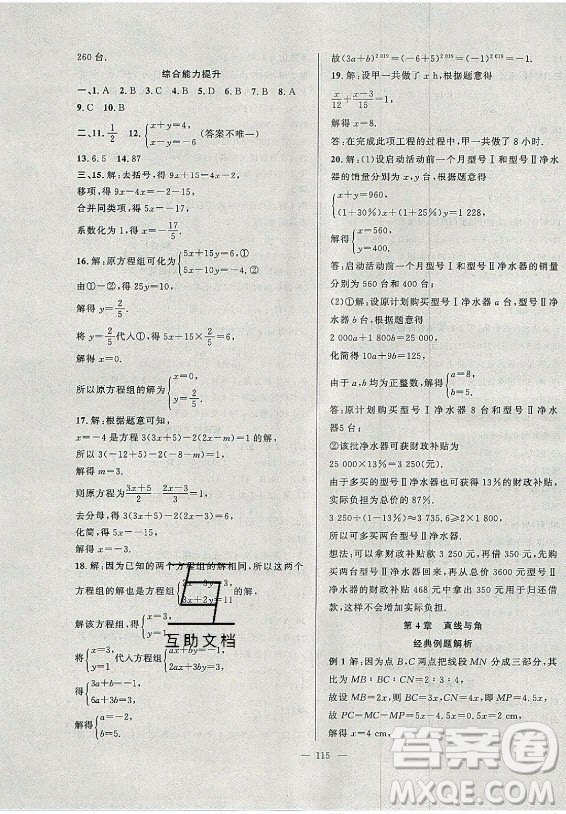 260 台.
综合能力提升
一、1. A 2. B 3. B 4. A 5. D 6. D 7. A 8. A
9. C 10. B
二、11. 1/2 12. {x+y=4, x-y=-6 (答案不唯一)
13. 6.5 14. 87
三、15. 解:去括号,得 9x+15-4x=-2,
移项,得 9x-4x=-2-15,
合并同类项,得 5x=-17,
系数化为 1,得 x=-17/5.
16. 解:原方程组可化为{5x+15y=6,① 5x-10y=-4,②
由①-②,得 25y=10,
解得 y=2/5.
将 y=2/5代入①,得 5x+15×2/5=6,
解得 x=0.
所以原方程组的解为{x=0, y=2/5.
17. 解:根据题意可知,
x=-4 是方程 3(3x+5)=2(2x-1)的解,
所以 3(-12+5)=2(-8-1),
解得
则原方程为 3x+5/2 2x-3/3,
去分母,得 3(3x+5)=2(2x-3),
化简,得 5x=-
解得 x=
18. 解:因为已知的两个方程组的解相同,所以这两个
方程组的解也是方程组{2x 3y=3, 3x+2y=11
解该方程组,得{x=3, y=
将{x=3, 代入方程组{
解得{a=-2, b=5.
互助文档
故(3a+b)2019=(-6+5)2019=(-1)2019=-1.
19. 解:设甲一共做了 x h,根据题意得
x/12+x-3/15=1,
解得 x=8.
答:在完成此项工程的过程中,甲一共做了 8 小时.
20. 解:(1)设启动活动前一个月型号Ⅰ和型号Ⅱ净水
器的销量分别为 x,y 台,根据题意得
{x+y=960, (1+30%)x+(1+25%)y=1 228,
解得{x=560, y=400.
答:启动活动前一个月型号Ⅰ和型号Ⅱ净水器的销量
分别为 560 台和 400 台;
(2)①解:设原计划购买型号Ⅰ净水器 a 台,型号Ⅱ净
水器 b 台,根据题意得
2 000a+1 800b=25 000,
化简得 10a+9b=125,
由于 a,b 均为正整数,解得{a=8, b=5.
答:原计划购买型号Ⅰ净水器 8 台和型号Ⅱ净水
器 5 台;
②该批净水器可获财政补贴为
25 000×13%=3 250(元).
由于多买的型号Ⅰ净水器可获得 13%的财政补贴,
实际负担为总价的 87%.
3 250÷(1-13%)≈3 735.6>2 000+1 800,
所以可多购买两台净水器,
想法:可以拿财政补贴 3 250 元,再垫支 550 元,先购
买两台型号Ⅱ净水器,再从总价 3600 元获得两台型
号Ⅱ净水器补贴 468 元中拿出一部分用于归还借款
这样不会增加实际负担.
第 4 章 直线与角
经典例题解析
例 1 解:因为点 B,C 两点把线段 MN 分成三部分,其
比为 MB∶BC∶CN=2∶3∶4,
故设 MB=2x,BC=3x,CN=4x,MN=9x,
故 PC=MC-PM=5x-4.5x=0.5x,
解得 x=4 cm,
— 115 —
答案圈
MXQE.COM